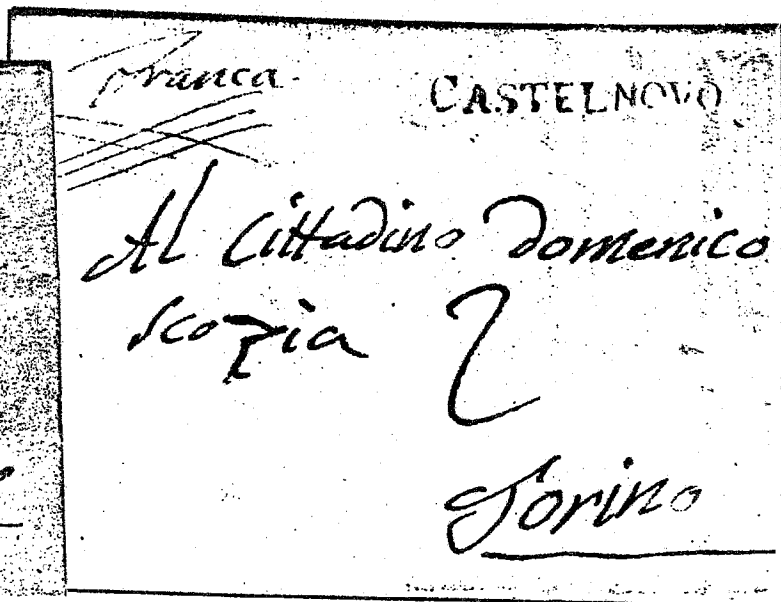 Franca
CASTELNOVO
Al Cittadino Domenico
Scozia
Torino